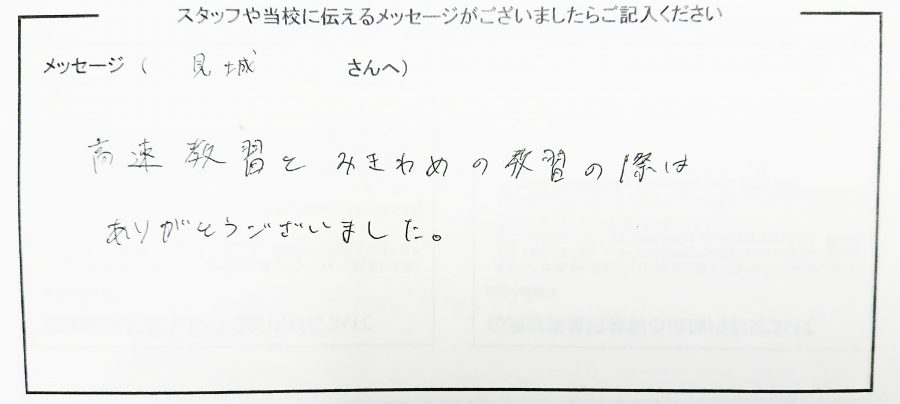 スタッフや当校に伝えるメッセージがございましたらご記入ください
メッセージ（ 見城 さんへ）
高速教習とみきわめの教習の際は
ありがとうございました。